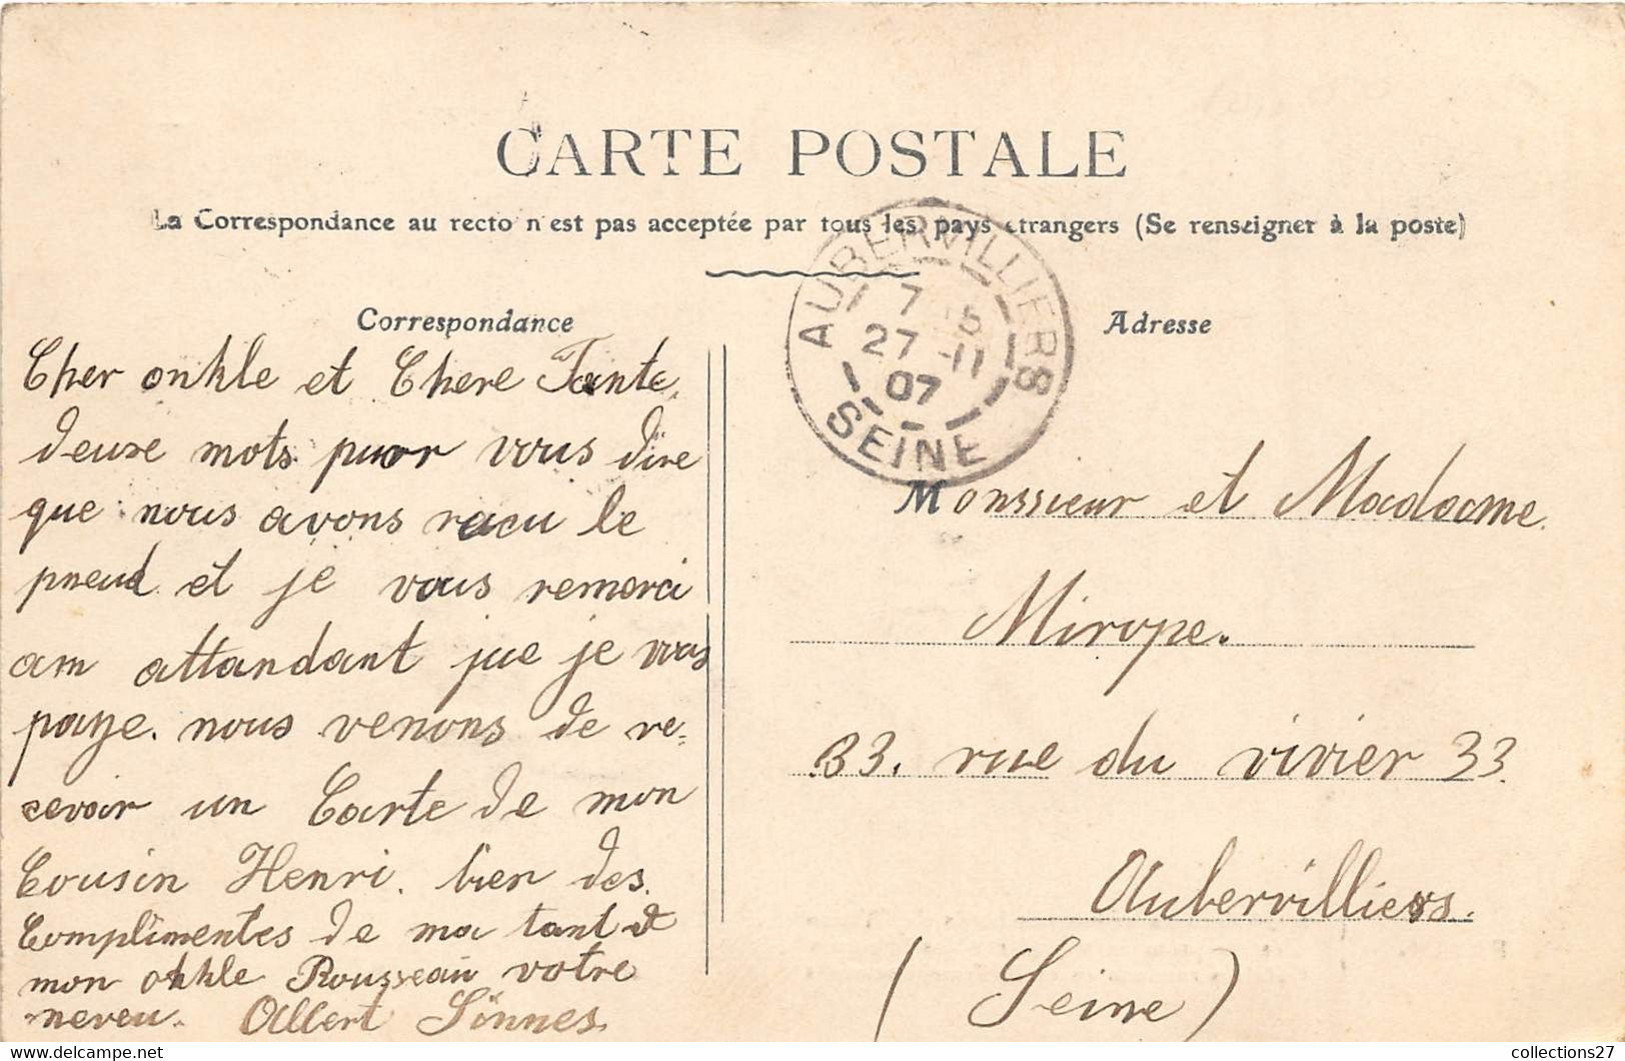 CARTE POSTALE
La Correspondance au recto n'est pas acceptée par tous les pays étrangers (Se renseigner à la poste)
Correspondance
Cher onkle et Chere Tante.
deuxe mots pour vous dire
que nous avons racu le
pneud et je vous remerci
am attandant que je vous
paye. nous venons de re-
cevoir un Carte de mon
Cousin Henri. bien des
Complimentes de ma tant et
mon onkle Rousseau votre
neveu. Albert Sinnes.
AUBERVILLIERS
7 15
27 -11
07
SEINE
Adresse
Monssieur et Madame
Mirope.
33. rue du vivier 33.
Aubervilliers.
(Seine)
collections27